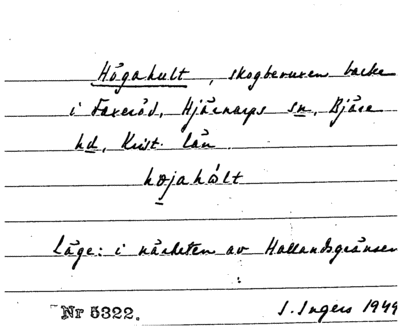 Högahult, skogbevuxen backe
i Faxeröd, Hjärnarps sn, Bjäre
hd, Krist. län.
höjahölt
Läge: i närheten av Hallandsgränsen
Nr 5322. I. Ingers 1949